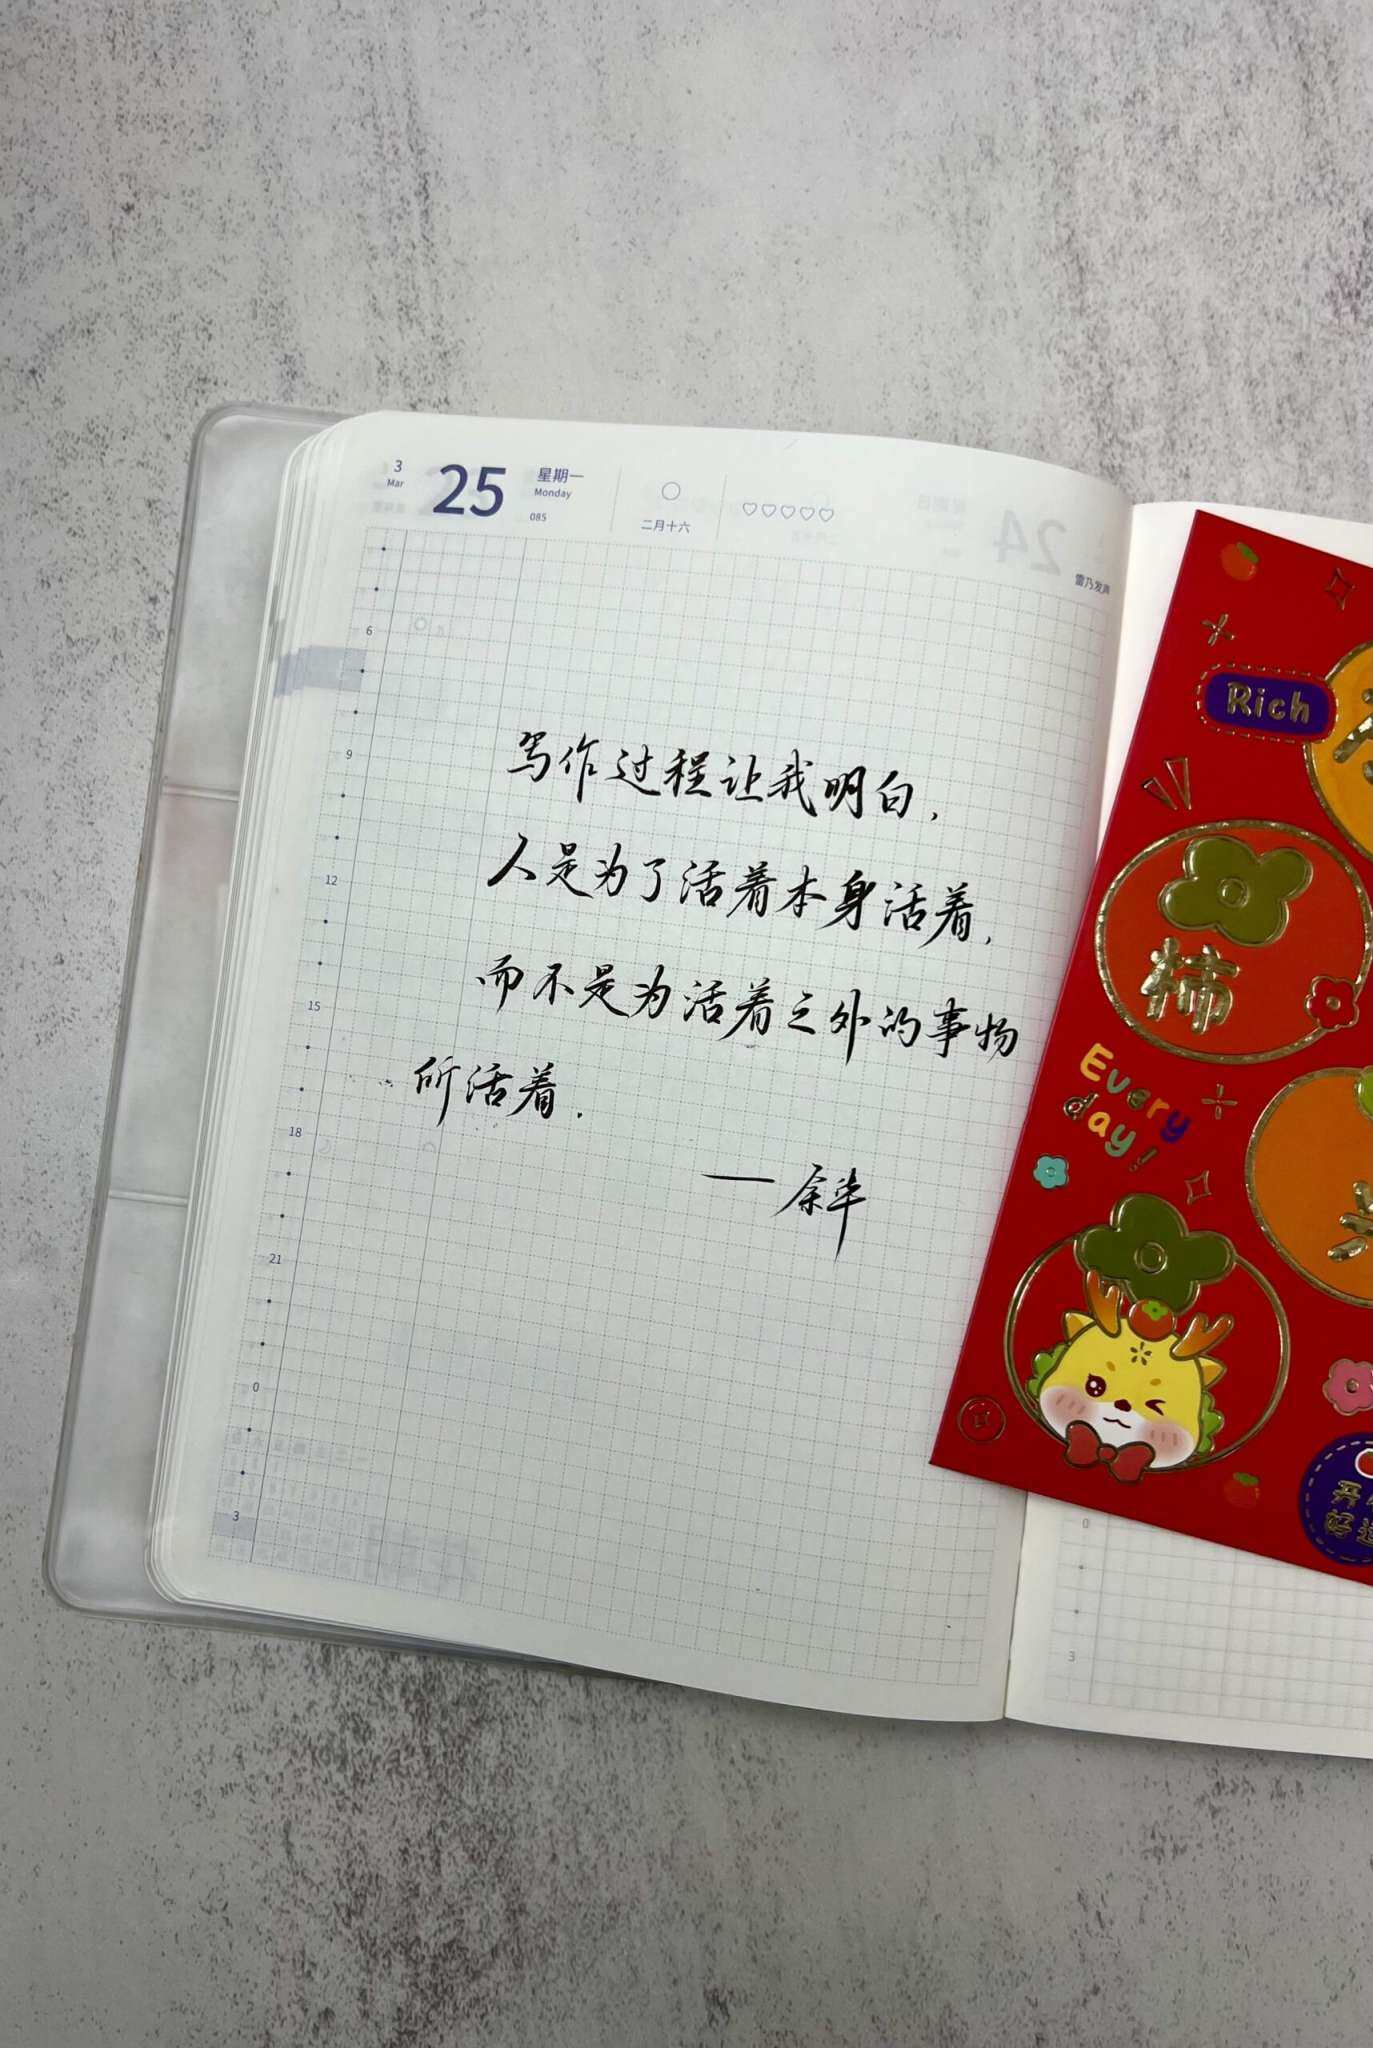 3
Mar
25
星期一
Monday
085
二月十六
雷乃发声
24
6
9
12
15
18
21
0
3
写作过程让我明白,
人是为了活着本身活着,
而不是为活着之外的事物
所活着.
——余华
Rich
柿
Every
day!
好运
0
3